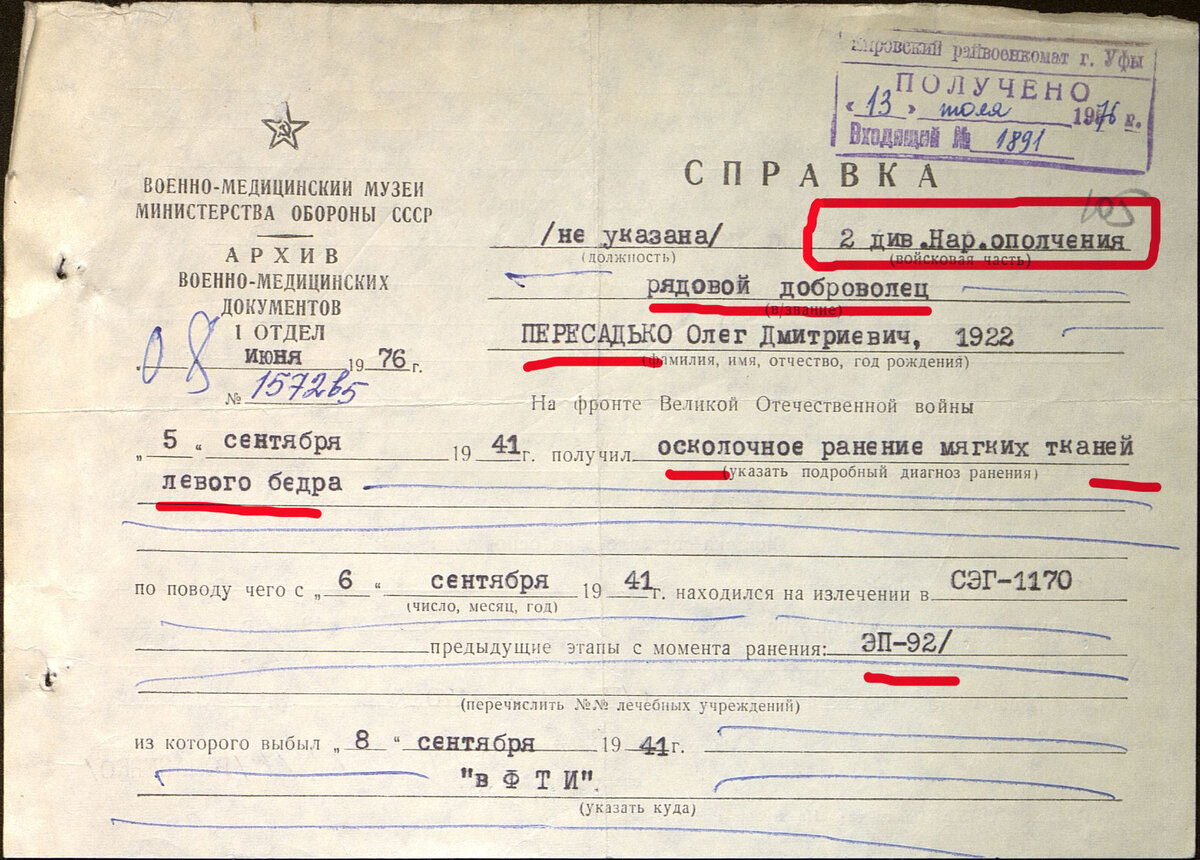 Кировский райвоенкомат г. Уфы
ПОЛУЧЕНО
« 13 » июля 1976 г.
Входящий № 1891
СПРАВКА
105
ВОЕННО-МЕДИЦИНСКИЙ МУЗЕЙ
МИНИСТЕРСТВА ОБОРОНЫ СССР
АРХИВ
ВОЕННО-МЕДИЦИНСКИХ
ДОКУМЕНТОВ
I ОТДЕЛ
„08 июня 1976 г.
№ 1572в5
/не указана/ 2 див.Нар.ополчения
(должность) (войсковая часть)
рядовой доброволец
(в/звание)
ПЕРЕСАДЬКО Олег Дмитриевич, 1922
(фамилия, имя, отчество, год рождения)
На фронте Великой Отечественной войны
„5“ сентября 1941г. получил осколочное ранение мягких тканей
(указать подробный диагноз ранения)
левого бедра
по поводу чего с „6“ сентября 1941г. находился на излечении в СЭГ-1170
(число, месяц, год)
предыдущие этапы с момента ранения: ЭП-92/
(перечислить №№ лечебных учреждений)
из которого выбыл „8“ сентября 1941г.
"в Ф Т И"
(указать куда)